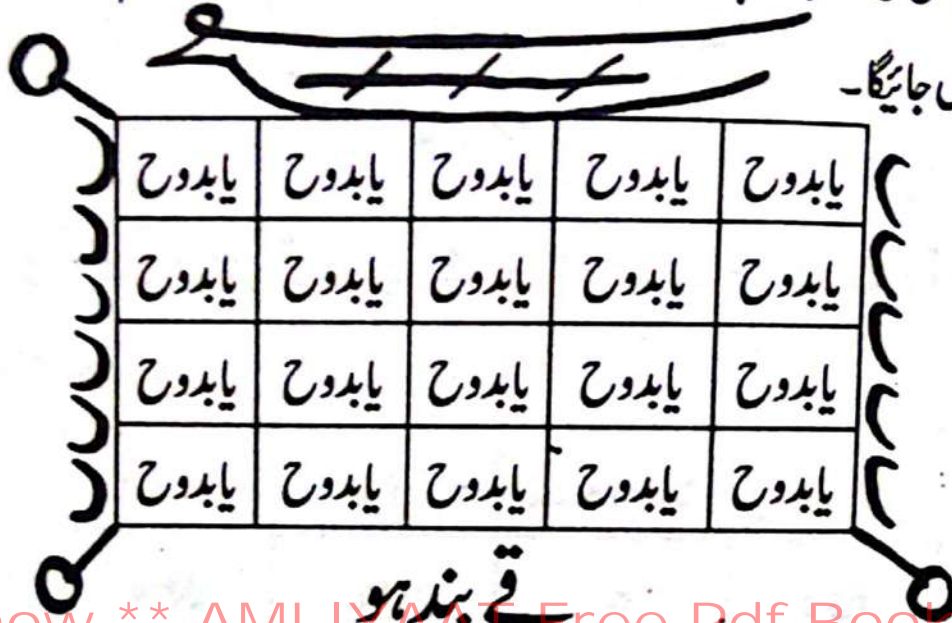 جائیگا۔
یابدوح یابدوح یابدوح یابدوح یابدوح
یابدوح یابدوح یابدوح یابدوح یابدوح
یابدوح یابدوح یابدوح یابدوح یابدوح
یابدوح یابدوح یابدوح یابدوح یابدوح
قے بند ہو
** AMLIYAAT Free Pdf Book